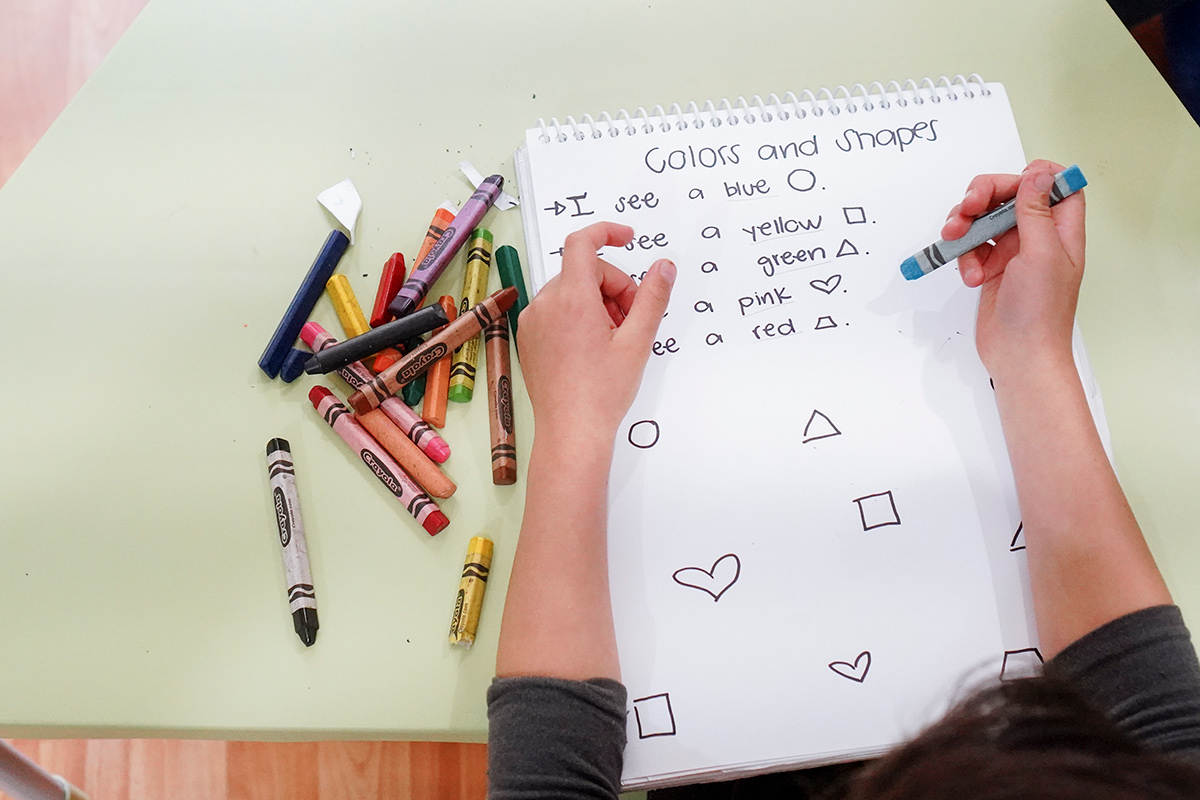 Colors and shapes
→I see a blue ○.
see a yellow □.
a green △.
a pink ♡.
see a red ⏢.
Crayola
Crayola
Crayola
Crayola
Crayola
Crayola